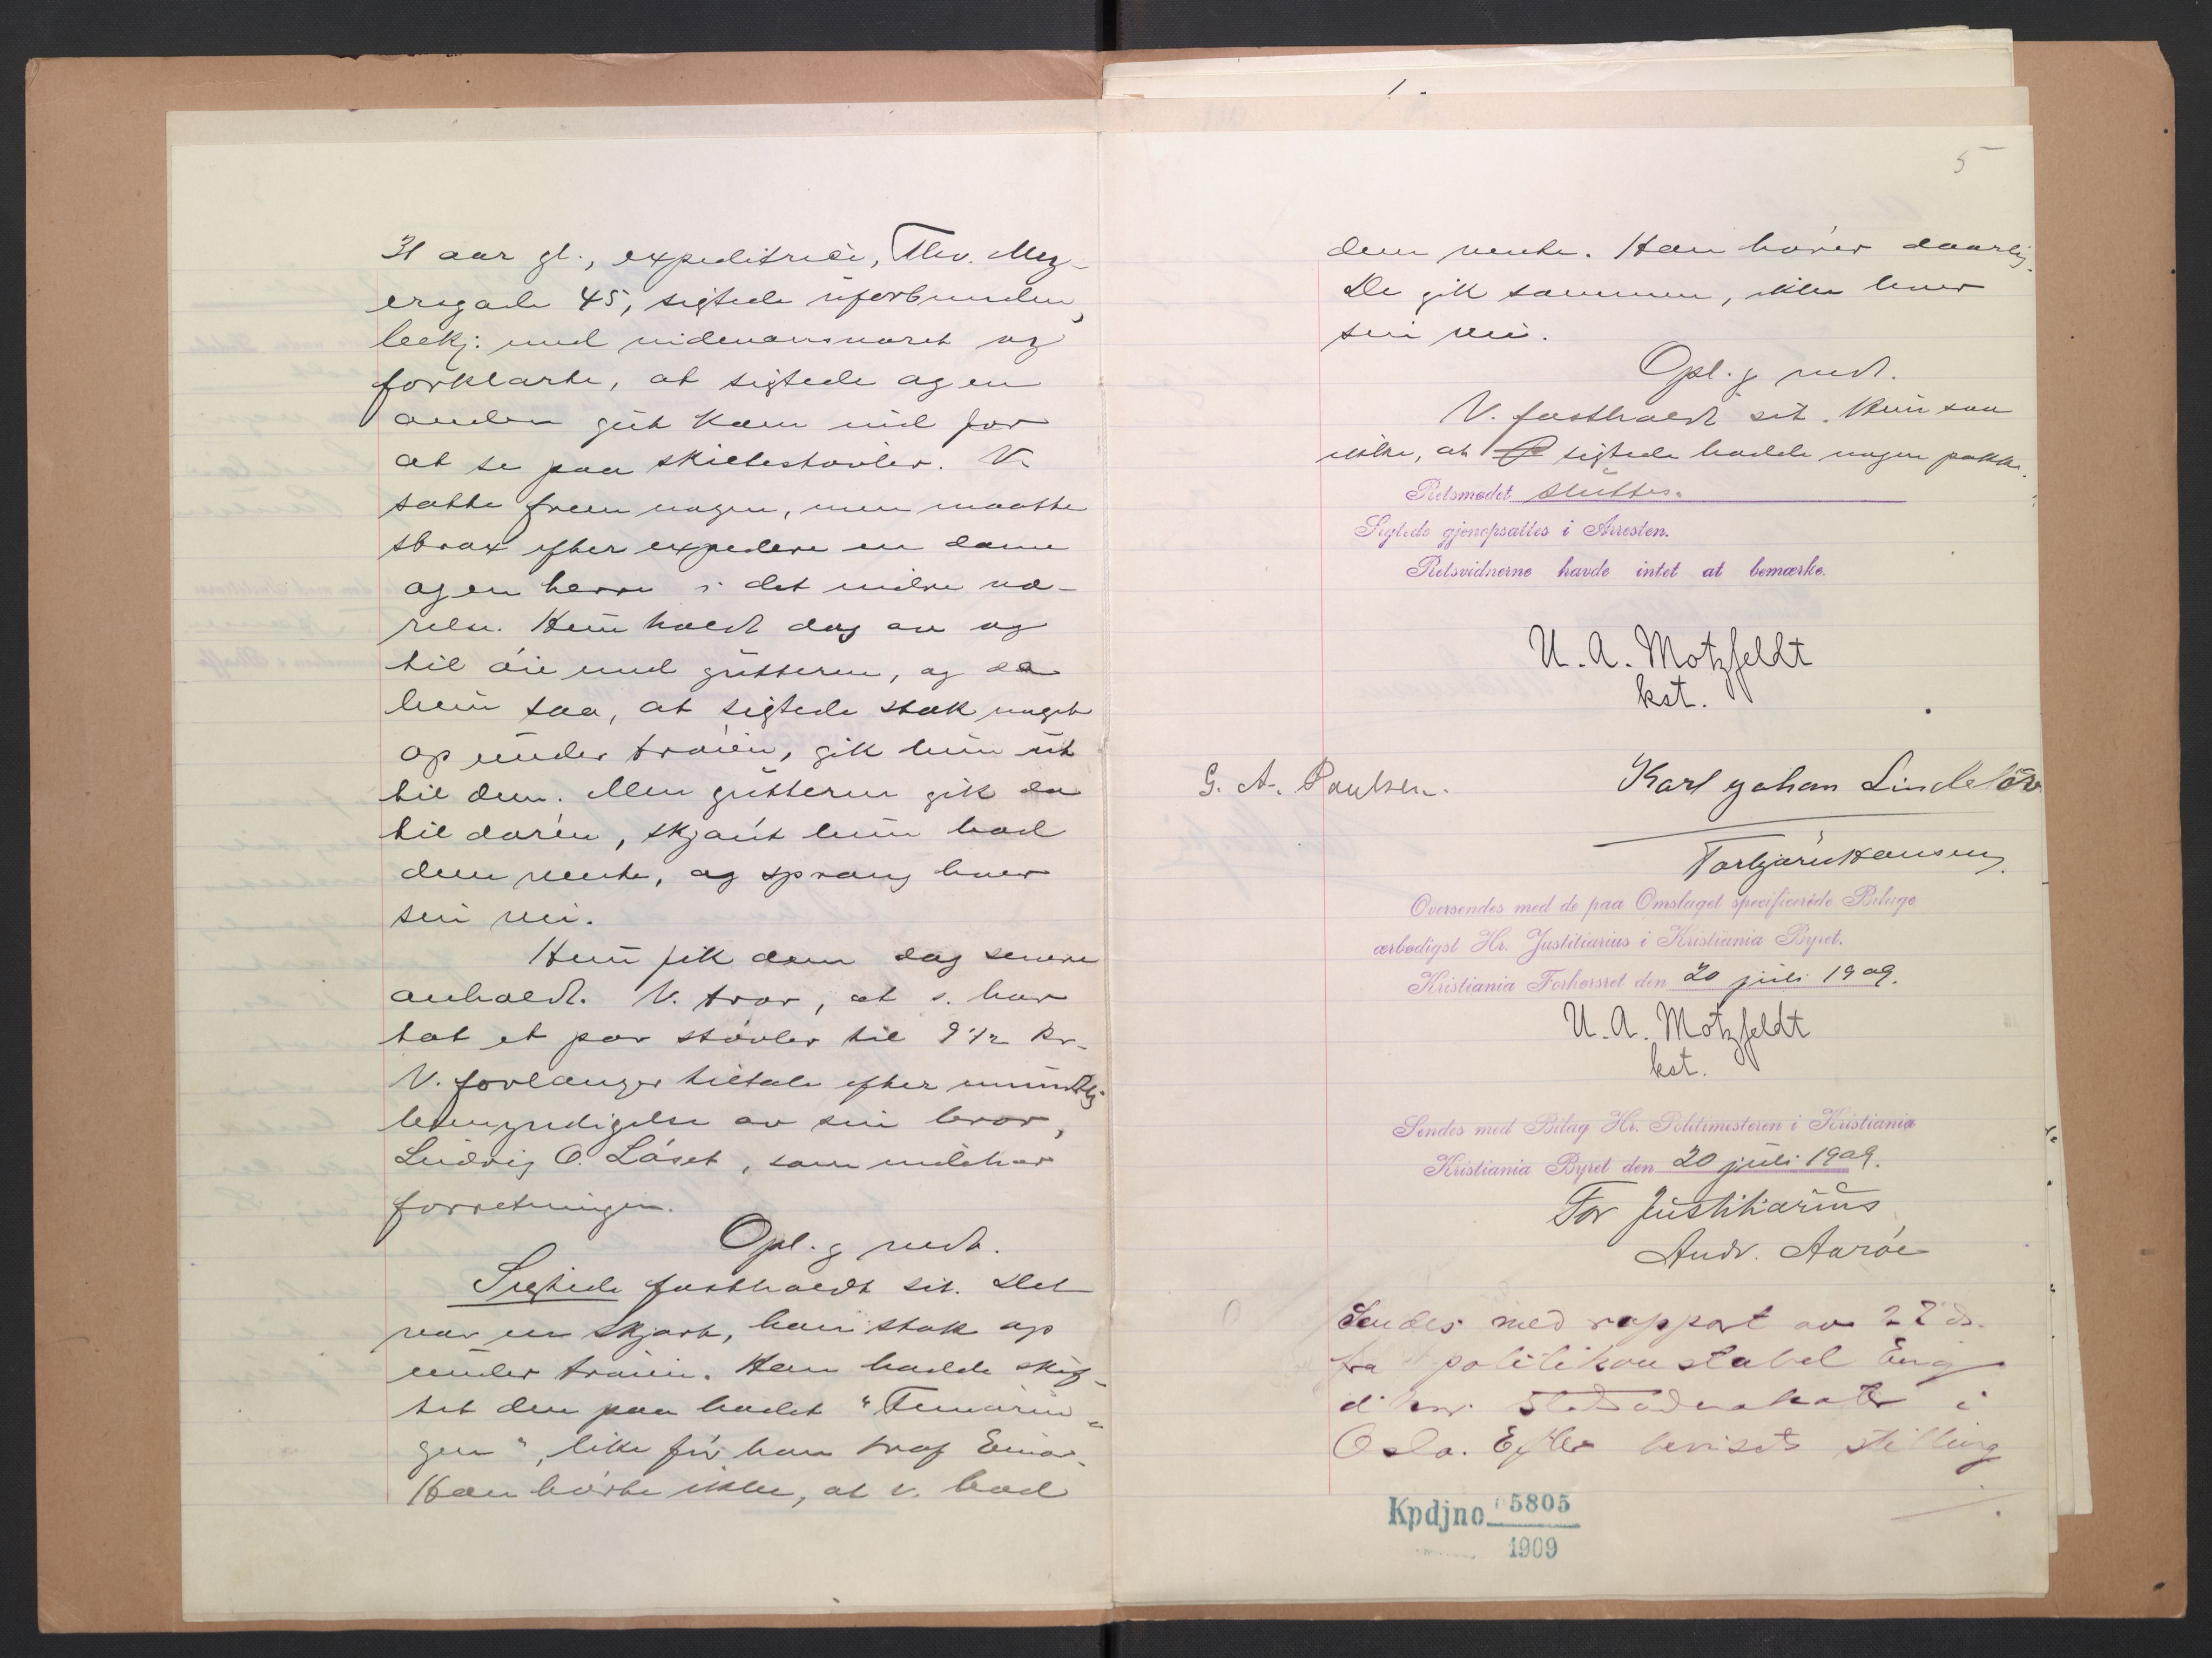 31 aar gl., expeditrice, Thv. Mey-
ersgade 45, sigtede uforbunden,
bekj: med vidneansvaret og
forklarte, at sigtede og en
anden gut kom ind for
at se paa skidestøvler. V.
satte frem nogen, men maatte
strax efter expedere en dame
og en herre i det indre væ-
relse. Hun holdt dog av og
til øie med gutterne, og da
hun saa, at sigtede stak noget
op under trøien, gik hun ut
til dem. Men gutterne gik da
til døren, skjønt hun bad
dem vente, og sprang hver
sin vei.
Hun fik dem dog senere
anholdt. V. tror, at s. har
tat et par støvler til 9 1/2 kr.
V. forlanger tiltale efter mundtlig
bemyndigelse av sin bror,
Ludvig O. Låset, som indehar
forretningen.
Opl. g vedt.
Sigtede fastholdt sit. Det
var en skjort, han stak op
under trøien. Han hadde skif-
tet den paa badet "
gen", like før han traf Einar.
Han hørte ikke, at v. bad
5
dem vente. Han hører daarlig.
De gik sammen, ikke hver
sin vei.
Opl. g vedt.
V. fastholdt sit. Hun saa
ikke, at sigtede hadde nogen pakke.
Retsmødet sluttes.
Sigtede gjenopsattes i Arresten.
Retsvidnerne havde intet at bemærke.
U. A. Motzfeldt
kst.
G. A. Paulsen. Karl Johan Lindeløv
Torbjørn Hansen
Oversendes med de paa Omslaget specificerede Bilage
ærbødigst Hr. Justitiarius i Kristiania Byret.
Kristiania Forhørsret den 20 juli 1909.
U. A. Motzfeldt
kst.
Sendes med Bilag Hr. Politimesteren i Kristiania
Kristiania Byret den 20 juli 1909.
For Justitiarius
Andr. Aarøe
Sendes med rapport av 22 ds.
fra politikonstabel Eng
d'hrr. Statsadvokater i
Oslo. Efter bevisets stilling
Kpdjno 5805
1909